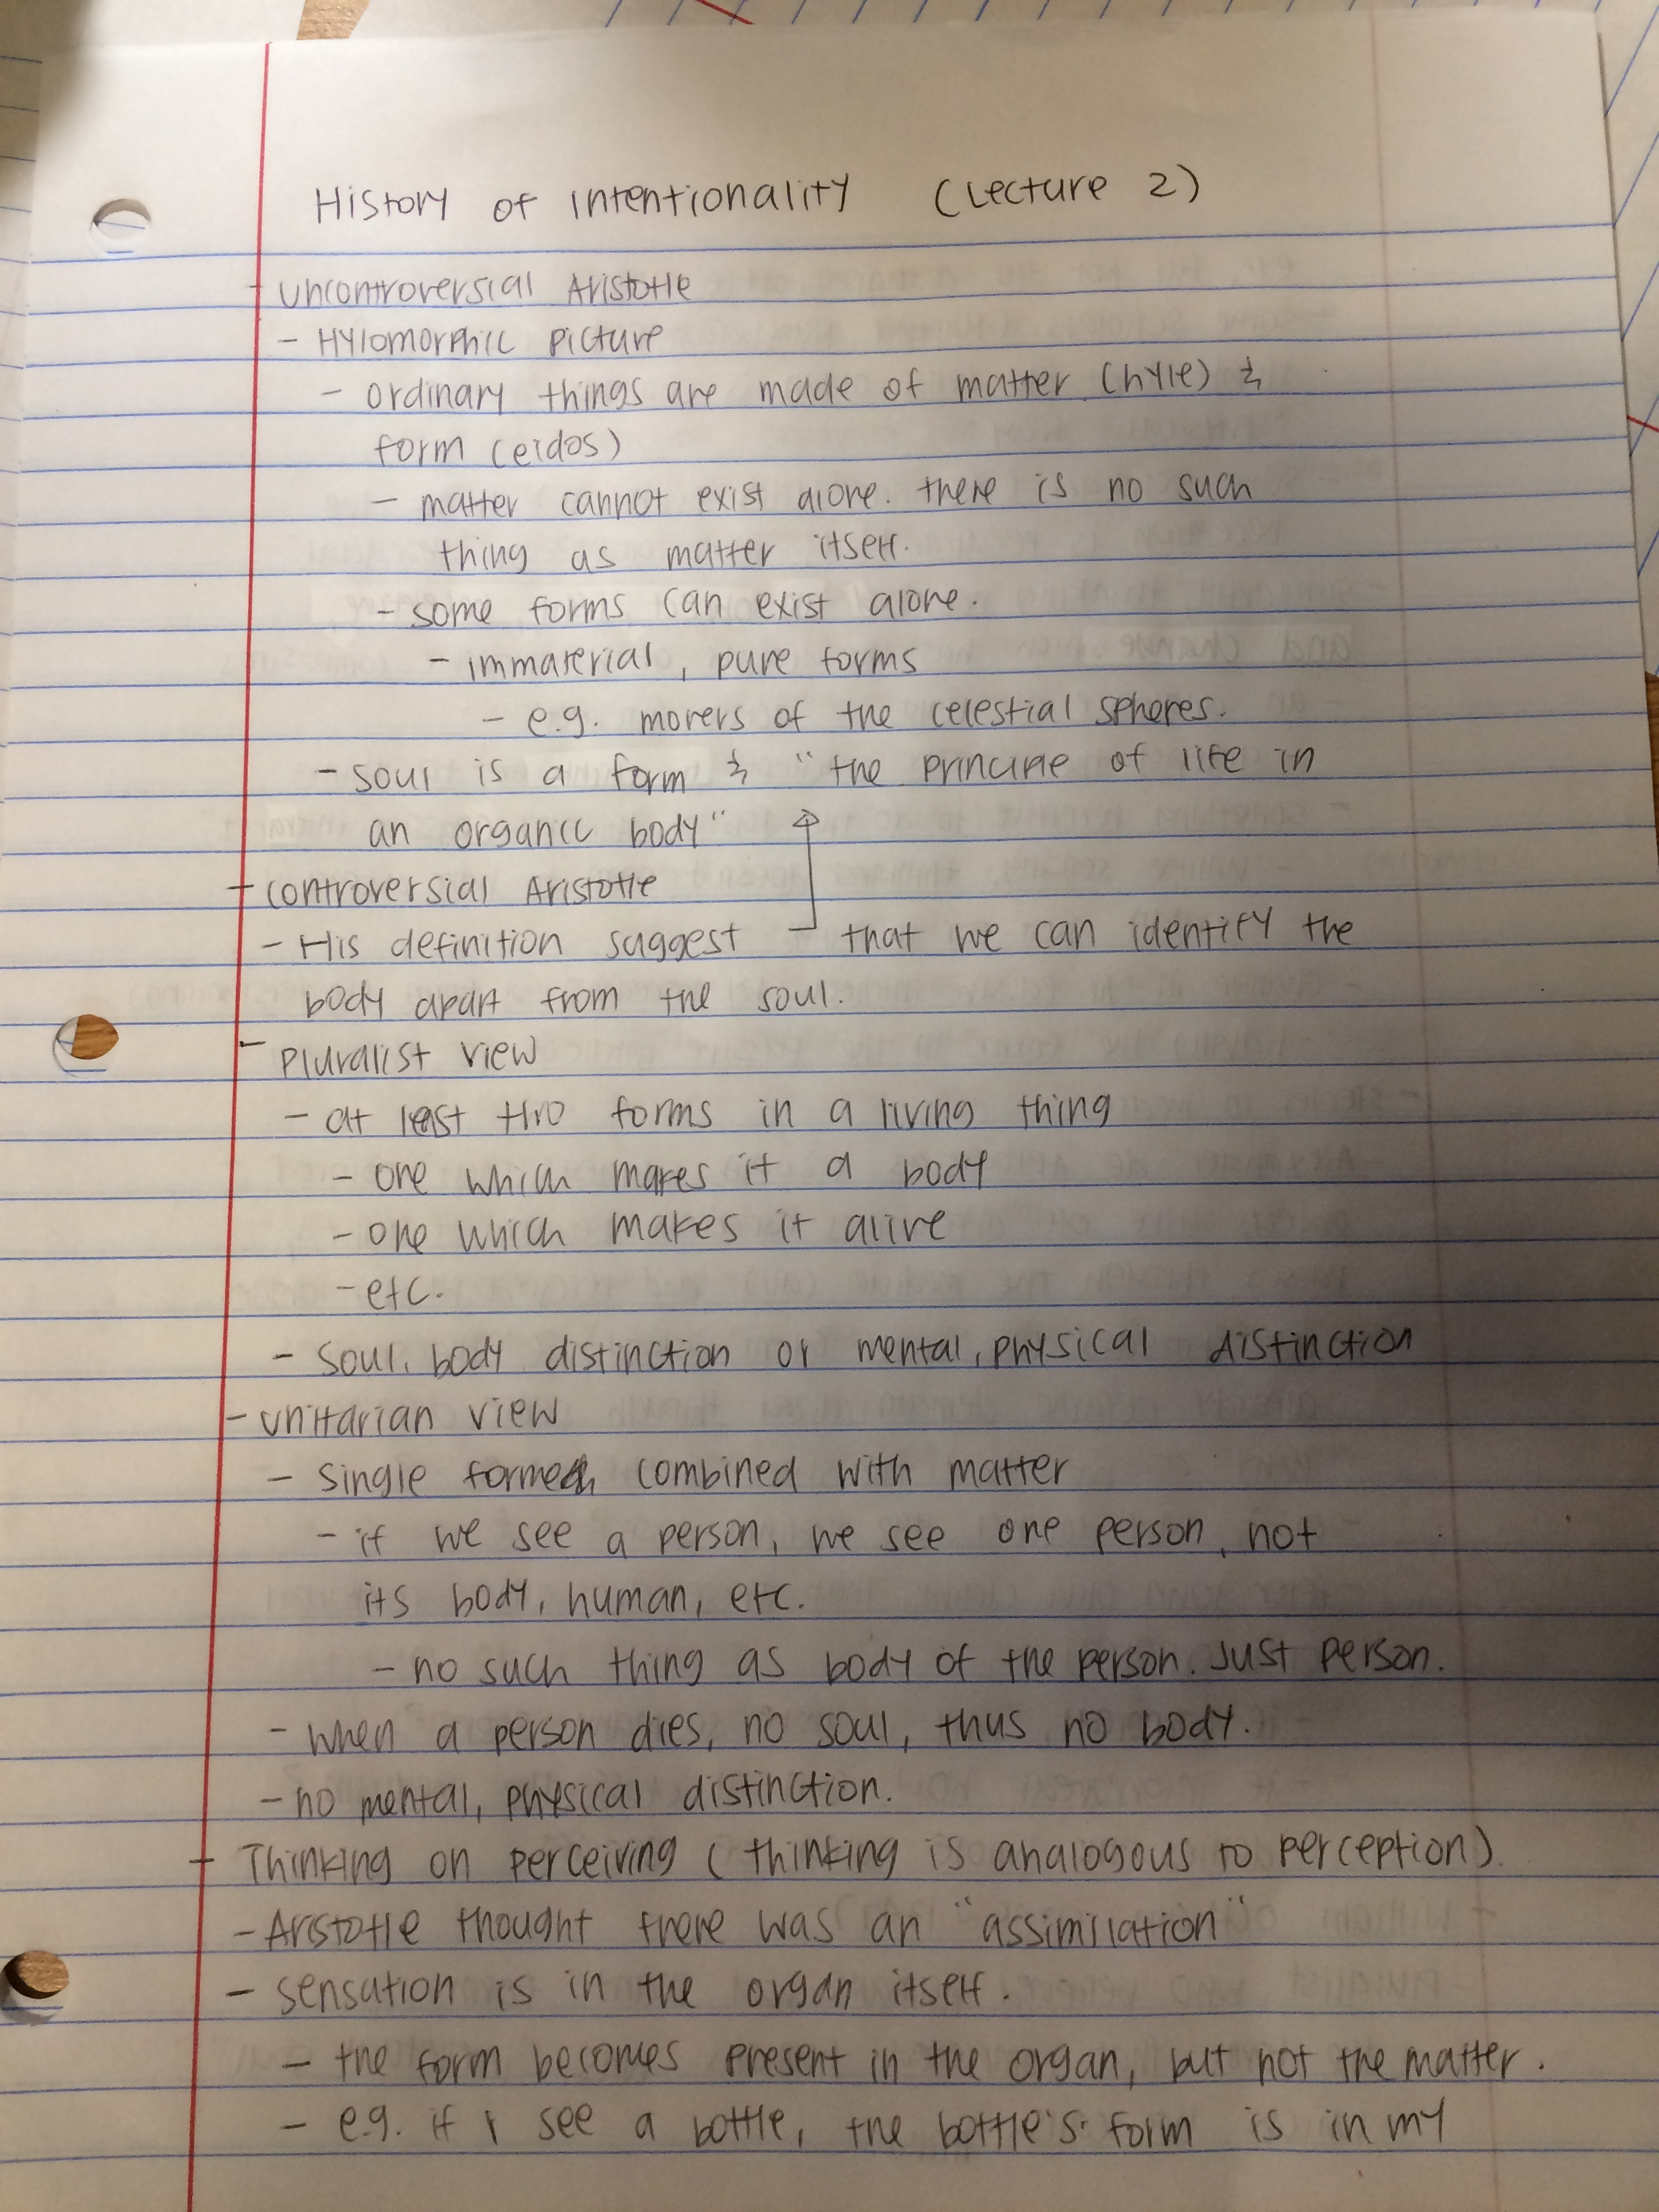 History of Intentionality (Lecture 2)
- Uncontroversial Aristotle
- Hylomorphic picture
- ordinary things are made of matter (hyle) &
form (eidos)
- matter cannot exist alone. there is no such
thing as matter itself.
- some forms can exist alone.
- immaterial, pure forms
- e.g. movers of the celestial spheres.
- soul is a form & "the principle of life in
an organic body"
- controversial Aristotle
- His definition suggest that we can identify the
body apart from the soul.
- pluralist view
- at least two forms in a living thing
- one which makes it a body
- one which makes it alive
- etc.
- soul, body distinction or mental, physical distinction
- unitarian view
- single form combined with matter
- if we see a person, we see one person, not
its body, human, etc.
- no such thing as body of the person. Just person.
- when a person dies, no soul, thus no body.
- no mental, physical distinction.
- Thinking on perceiving (thinking is analogous to perception)
- Aristotle thought there was an "assimilation"
- sensation is in the organ itself.
- the form becomes present in the organ, but not the matter.
- e.g. if I see a bottle, the bottle's form is in my